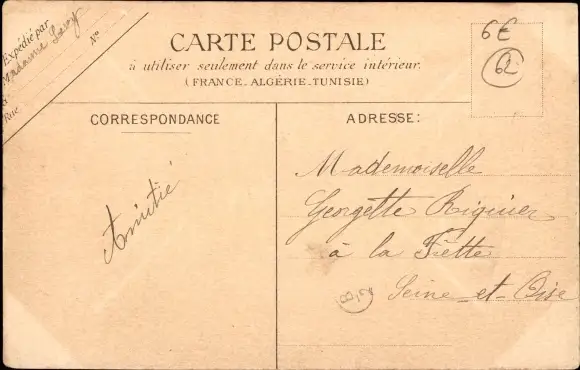 Expédié par
Madame Lary
N°
à
Rue
CARTE POSTALE
à utiliser seulement dans le service intérieur.
(FRANCE-ALGÉRIE-TUNISIE)
6€
62
CORRESPONDANCE
Amitié
ADRESSE:
Mademoiselle
Georgette Riguier
à la Frette
Seine-et-Oise
B
2